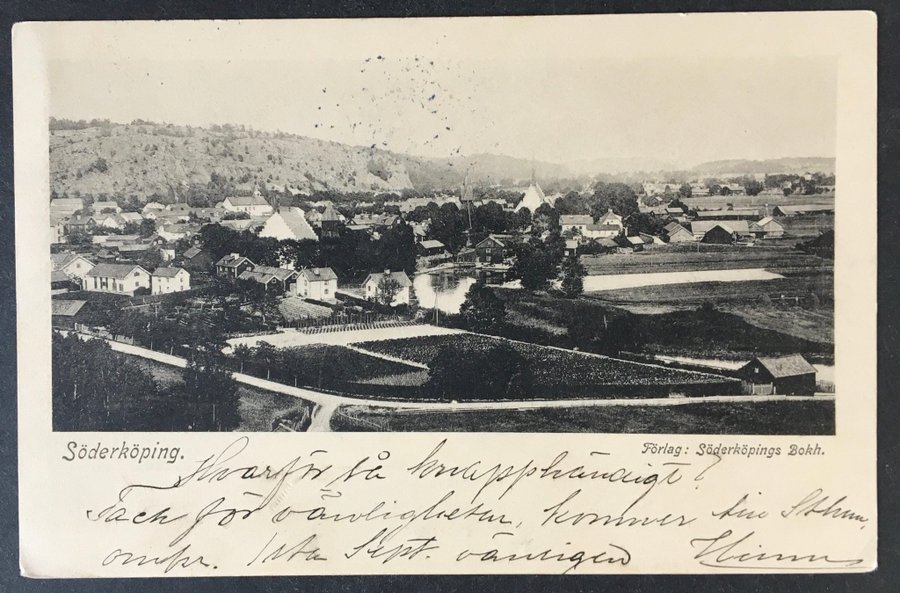 Söderköping.
Förlag: Söderköpings Bokh.
Hvarför så knapphändigt?
Tack för vänligheten, kommer till Sthlm,
omkr. 1sta Sept. vänligen